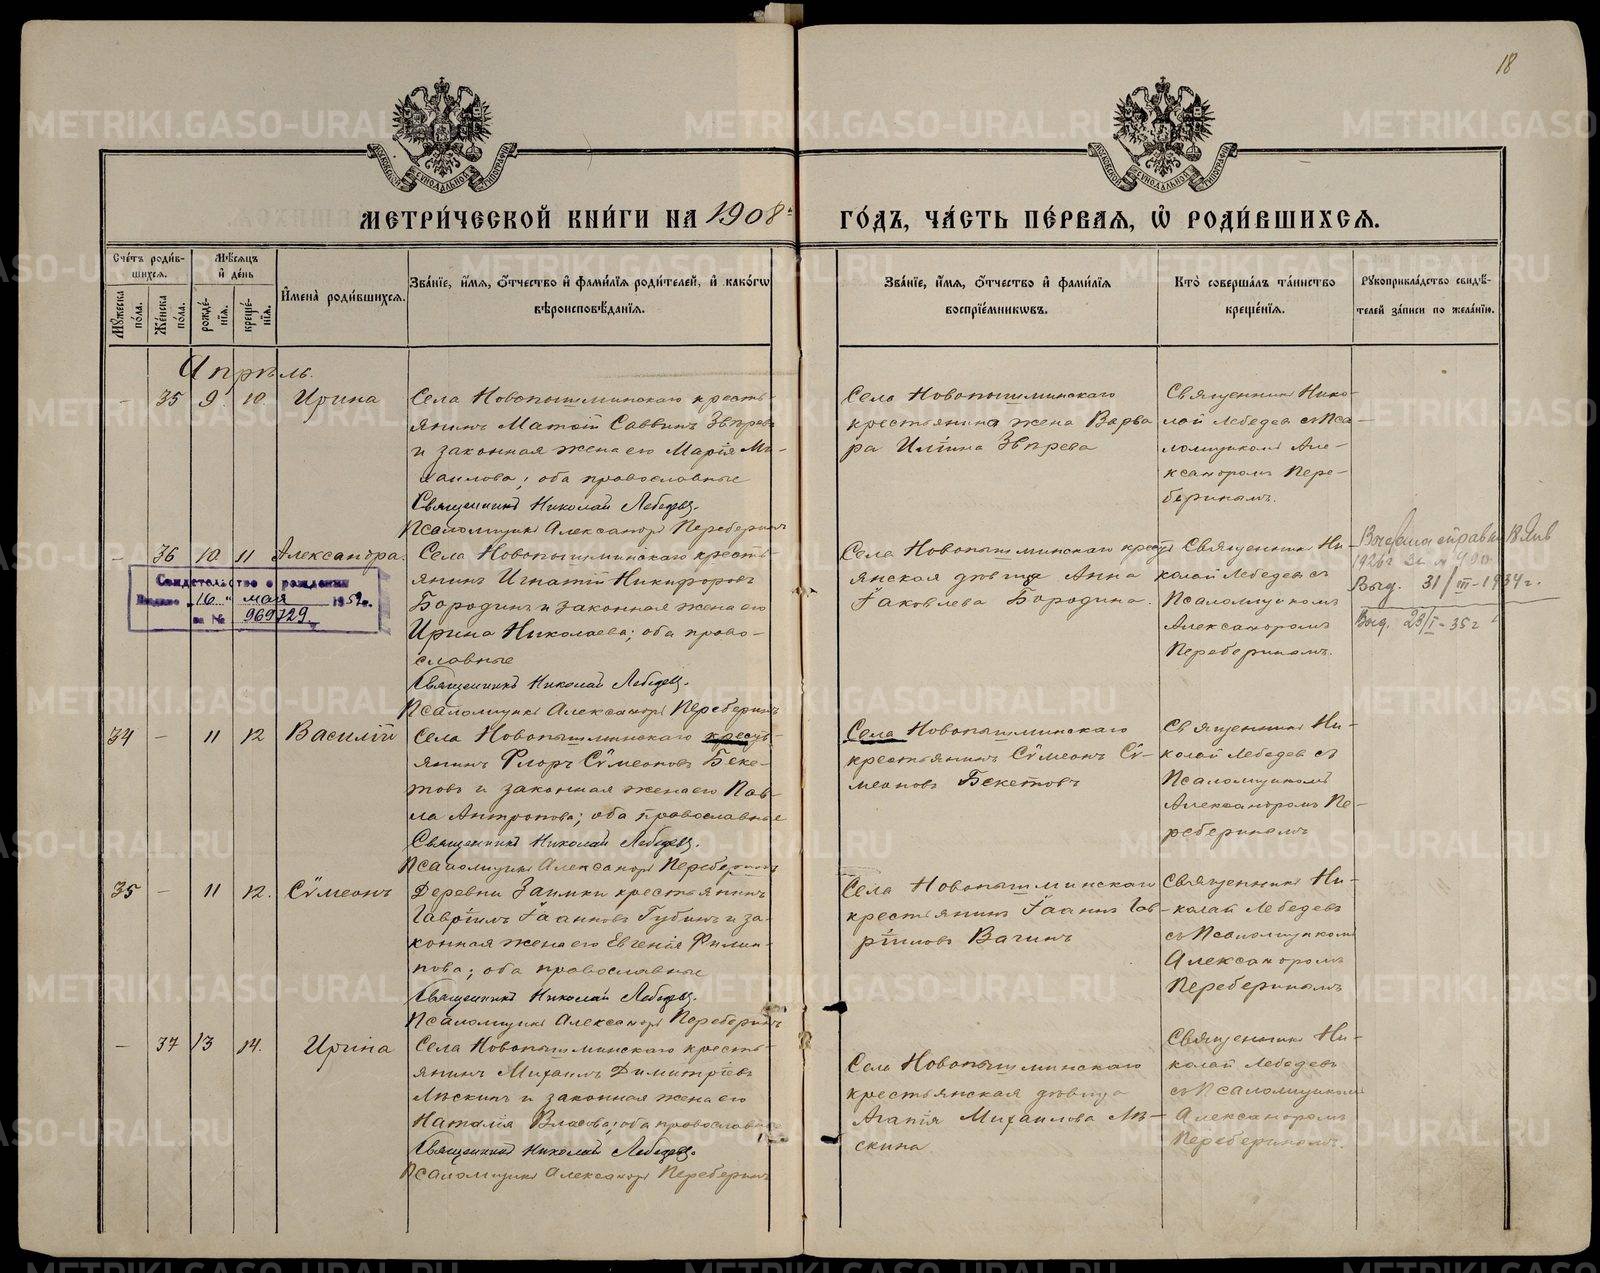 18
МОСКОВСКОЙ СѴНОДАЛЬНОЙ ТИПОГРАФІИ
МОСКОВСКОЙ СѴНОДАЛЬНОЙ ТИПОГРАФІИ
МЕТРИ́ЧЕСКОЙ КНИ́ГИ НА 1908
ГО́ДЪ, ЧА́СТЬ ПЕ́РВАЯ, Ѡ҆ РОДИ́ВШИХСѦ.
Сче́тъ роди́в-
шихсѧ.
Мꙋ́жеска по́ла.
Же́нска по́ла.
Мѣ́сѧцъ и҆ де́нь
рожде́-нїѧ.
креще́-нїѧ.
И҆мена̀ роди́вшихсѧ.
Зва́нїе, и҆́мѧ, ѻ҆́тчество и҆ фами́лїѧ роди́телей, и҆ како́гѡ
вѣроисповѣ́данїѧ.
Зва́нїе, и҆́мѧ, ѻ҆́тчество и҆ фами́лїѧ
воспрїе́мникѡвъ.
Кто̀ соверша́лъ та́инство
креще́нїѧ.
Рꙋкоприкла́дство свидѣ́-
телей за́писи по жела́нїю.
Апрѣль.
– 35 9 10 Ирина
Села Новопышминскаго кресть-
янинъ Матѳій Саввинъ Звѣревъ
и законная жена его Марія Ми-
хаилова; оба православные
Священникъ Николай Лебедевъ.
Псаломщикъ Александръ Переберинъ
Села Новопышминскаго
крестьянина жена Варва
ра Иліина Звѣрева
Священникъ Нико-
лай Лебедевъ съ Пса-
ломщикомъ Але-
ксандромъ Пере-
беринымъ.
– 36 10 11 Александра.
Свидетельство о рождении
Выдано "16" мая 1959 г.
за № 969729
Села Новопышминскаго кресть-
янинъ Игнатій Никифоровъ
Бородинъ и законная жена его
Ирина Николаева; оба право-
славные
Священникъ Николай Лебедевъ.
Псаломщикъ Александръ Переберинъ
Села Новопышминскаго крест
янская дѣвица Анна
Іаковлева Бородина.
Священникъ Ни-
колай Лебедевъ съ
Псаломщикомъ
Александромъ
Переберинымъ.
справка 18 Янв
1926 г. за №
Выд. 31/III-1934 г.
Выд. 23/I-35 г
34 – 11 12 Василій
Села Новопышминскаго кресть-
янинъ Флоръ Сѵмеоновъ Беке-
товъ и законная жена его Пав-
ла Антропова; оба православные
Священникъ Николай Лебедевъ.
Псаломщикъ Александръ Переберинъ
Села Новопышминскаго
крестьянинъ Сѵмеонъ Сѵ-
меоновъ Бекетовъ
Священникъ Ни-
колай Лебедевъ съ
Псаломщикомъ
Александромъ Пе-
реберинымъ
35 – 11 12. Сѵмеонъ
Деревни Заимки крестьянинъ
Гавріилъ Іоанновъ Губинъ и за-
конная жена его Евгенія Филип-
пова; оба православные
Священникъ Николай Лебедевъ.
Псаломщикъ Александръ Переберинъ
Села Новопышминскаго
крестьянинъ Іоаннъ Гав-
ріиловъ Вагинъ
Священникъ Ни-
колай Лебедевъ
съ Псаломщикомъ
Александромъ
Переберинымъ
– 37 13 14. Ирина
Села Новопышминскаго кресть-
янинъ Михаилъ Димитріевъ
Лѣскинъ и законная жена его
Наталія Власова; оба православные
Священникъ Николай Лебедевъ.
Псаломщикъ Александръ Переберинъ
Села Новопышминскаго
крестьянская дѣвица
Агапія Михаилова Лѣ-
скина
Священникъ Ни-
колай Лебедевъ
съ Псаломщикомъ
Александромъ
Переберинымъ.
METRIKI.GASO-URAL.RU